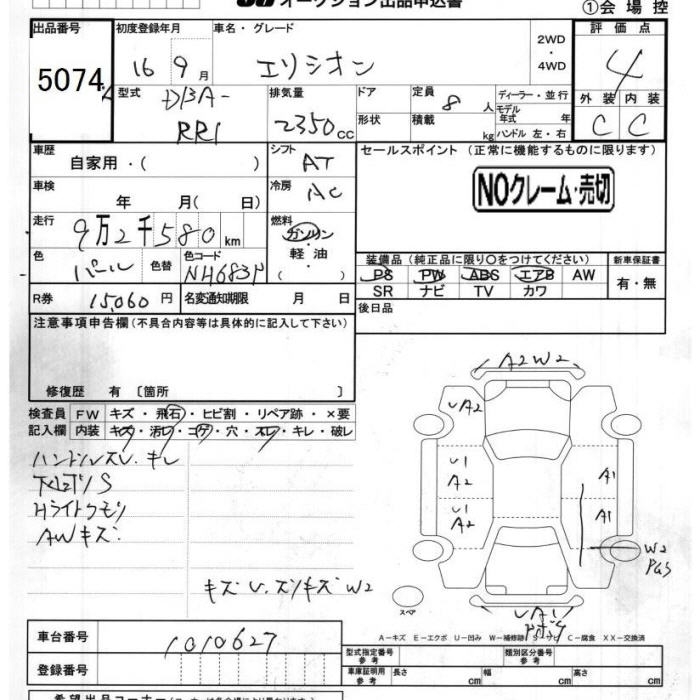 オークション出品申込書
①会場控
出品番号
5074
初度登録年月
16 9月
車名・グレード
エリシオン
2WD
・
4WD
評価点
4
外装 内装
C C
型式
DBA-
RR1
排気量
2350cc
ドア
形状
定員 8人
積載 kg
ディーラー・並行
モデル年式 年
ハンドル 左・右
車歴
自家用・( )
シフト
AT
車検
年 月( 日)
冷房
AC
走行
9万2千580km
燃料
ガソリン
・
軽油
( )
色
パール
色替
色コード
NH683P
R券 15060円
名変通知期限 月 日
セールスポイント (正常に機能するものに限ります)
NOクレーム・売切
装備品(純正品に限り○をつけてください)
PS PW ABS エアB AW
SR ナビ TV カワ
新車保証書
有・無
後日品
注意事項申告欄(不具合内容等は具体的に記入して下さい)
修復歴 有〔箇所 〕
検査員 FW キズ・飛石・ヒビ割・リペア跡・×要
記入欄 内装 キズ・汚レ・コゲ・穴・スレ・キレ・破レ
ハンドルスレ.キレ
下回りS
Hライトクモリ
AWキズ
キズ U.スリキズ W2
A2 W2
UA2
U1
A2
U1
A2
A1
A1
W2
PGS
スペア
UA1
A-キズ E-エクボ U-凹み W-補修跡 S-サビ C-腐食 XX-交換済
車台番号
1010627
登録番号
型式指定番号
参考
類別区分番号
参考
車庫証明用
参考
長さ cm
幅 cm
高さ cm